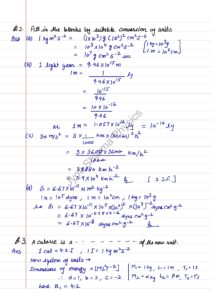 Q.2. Fill in the blanks by suitable conversion of units
Ans (a) 1 kg m² s⁻² = (1×10³) g (10²)² cm² s⁻²
= 10³ × 10⁴ g cm² s⁻²
= 10⁷ g cm² s⁻²
[1 kg = 10³ g
1 m = 10² cm]
(b) 1 light year = 9.46 × 10¹⁵ m
1 m = 1 / 9.46 × 10¹⁵ ly
= 10⁻¹⁵ / 9.46
= 10 × 10⁻¹⁶ / 9.46
or 1 m = 1.057 × 10⁻¹⁶ ly = 10⁻¹⁶ ly
(c) 3 m s⁻² = 3 × 1/1000 km (60×60)² h⁻²
= 3 × 3600 × 3600 / 1000 km/h²
= 38880 km h⁻²
= 3.9 × 10⁴ km h⁻²
(d) G = 6.67 × 10⁻¹¹ N m² kg⁻²
1 N = 10⁵ dyne, 1 m = 10² cm, 1 kg = 10³ g
so G = 6.67 × 10⁻¹¹ × 10⁵ × (10²)² × (10³)⁻² dyne cm² g⁻²
= 6.67 × 10⁻¹¹⁺⁵⁺⁴⁻⁶ dyne cm² g⁻²
= 6.67 × 10⁻⁸ dyne cm² g⁻²
Q.3. A calorie is a - - - - - - - - of the new unit.
Ans 1 cal = 4.2 J , 1 J = 1 kg m² s⁻²
New system of units →
Dimensions of energy = [ML²T⁻²]
a = 1, b = 2, c = -2
here n₁ = 4.2
M₁ = 1 kg, L₁ = 1m, T₁ = 1s
M₂ = α kg, L₂ = βm, T₂ = γs